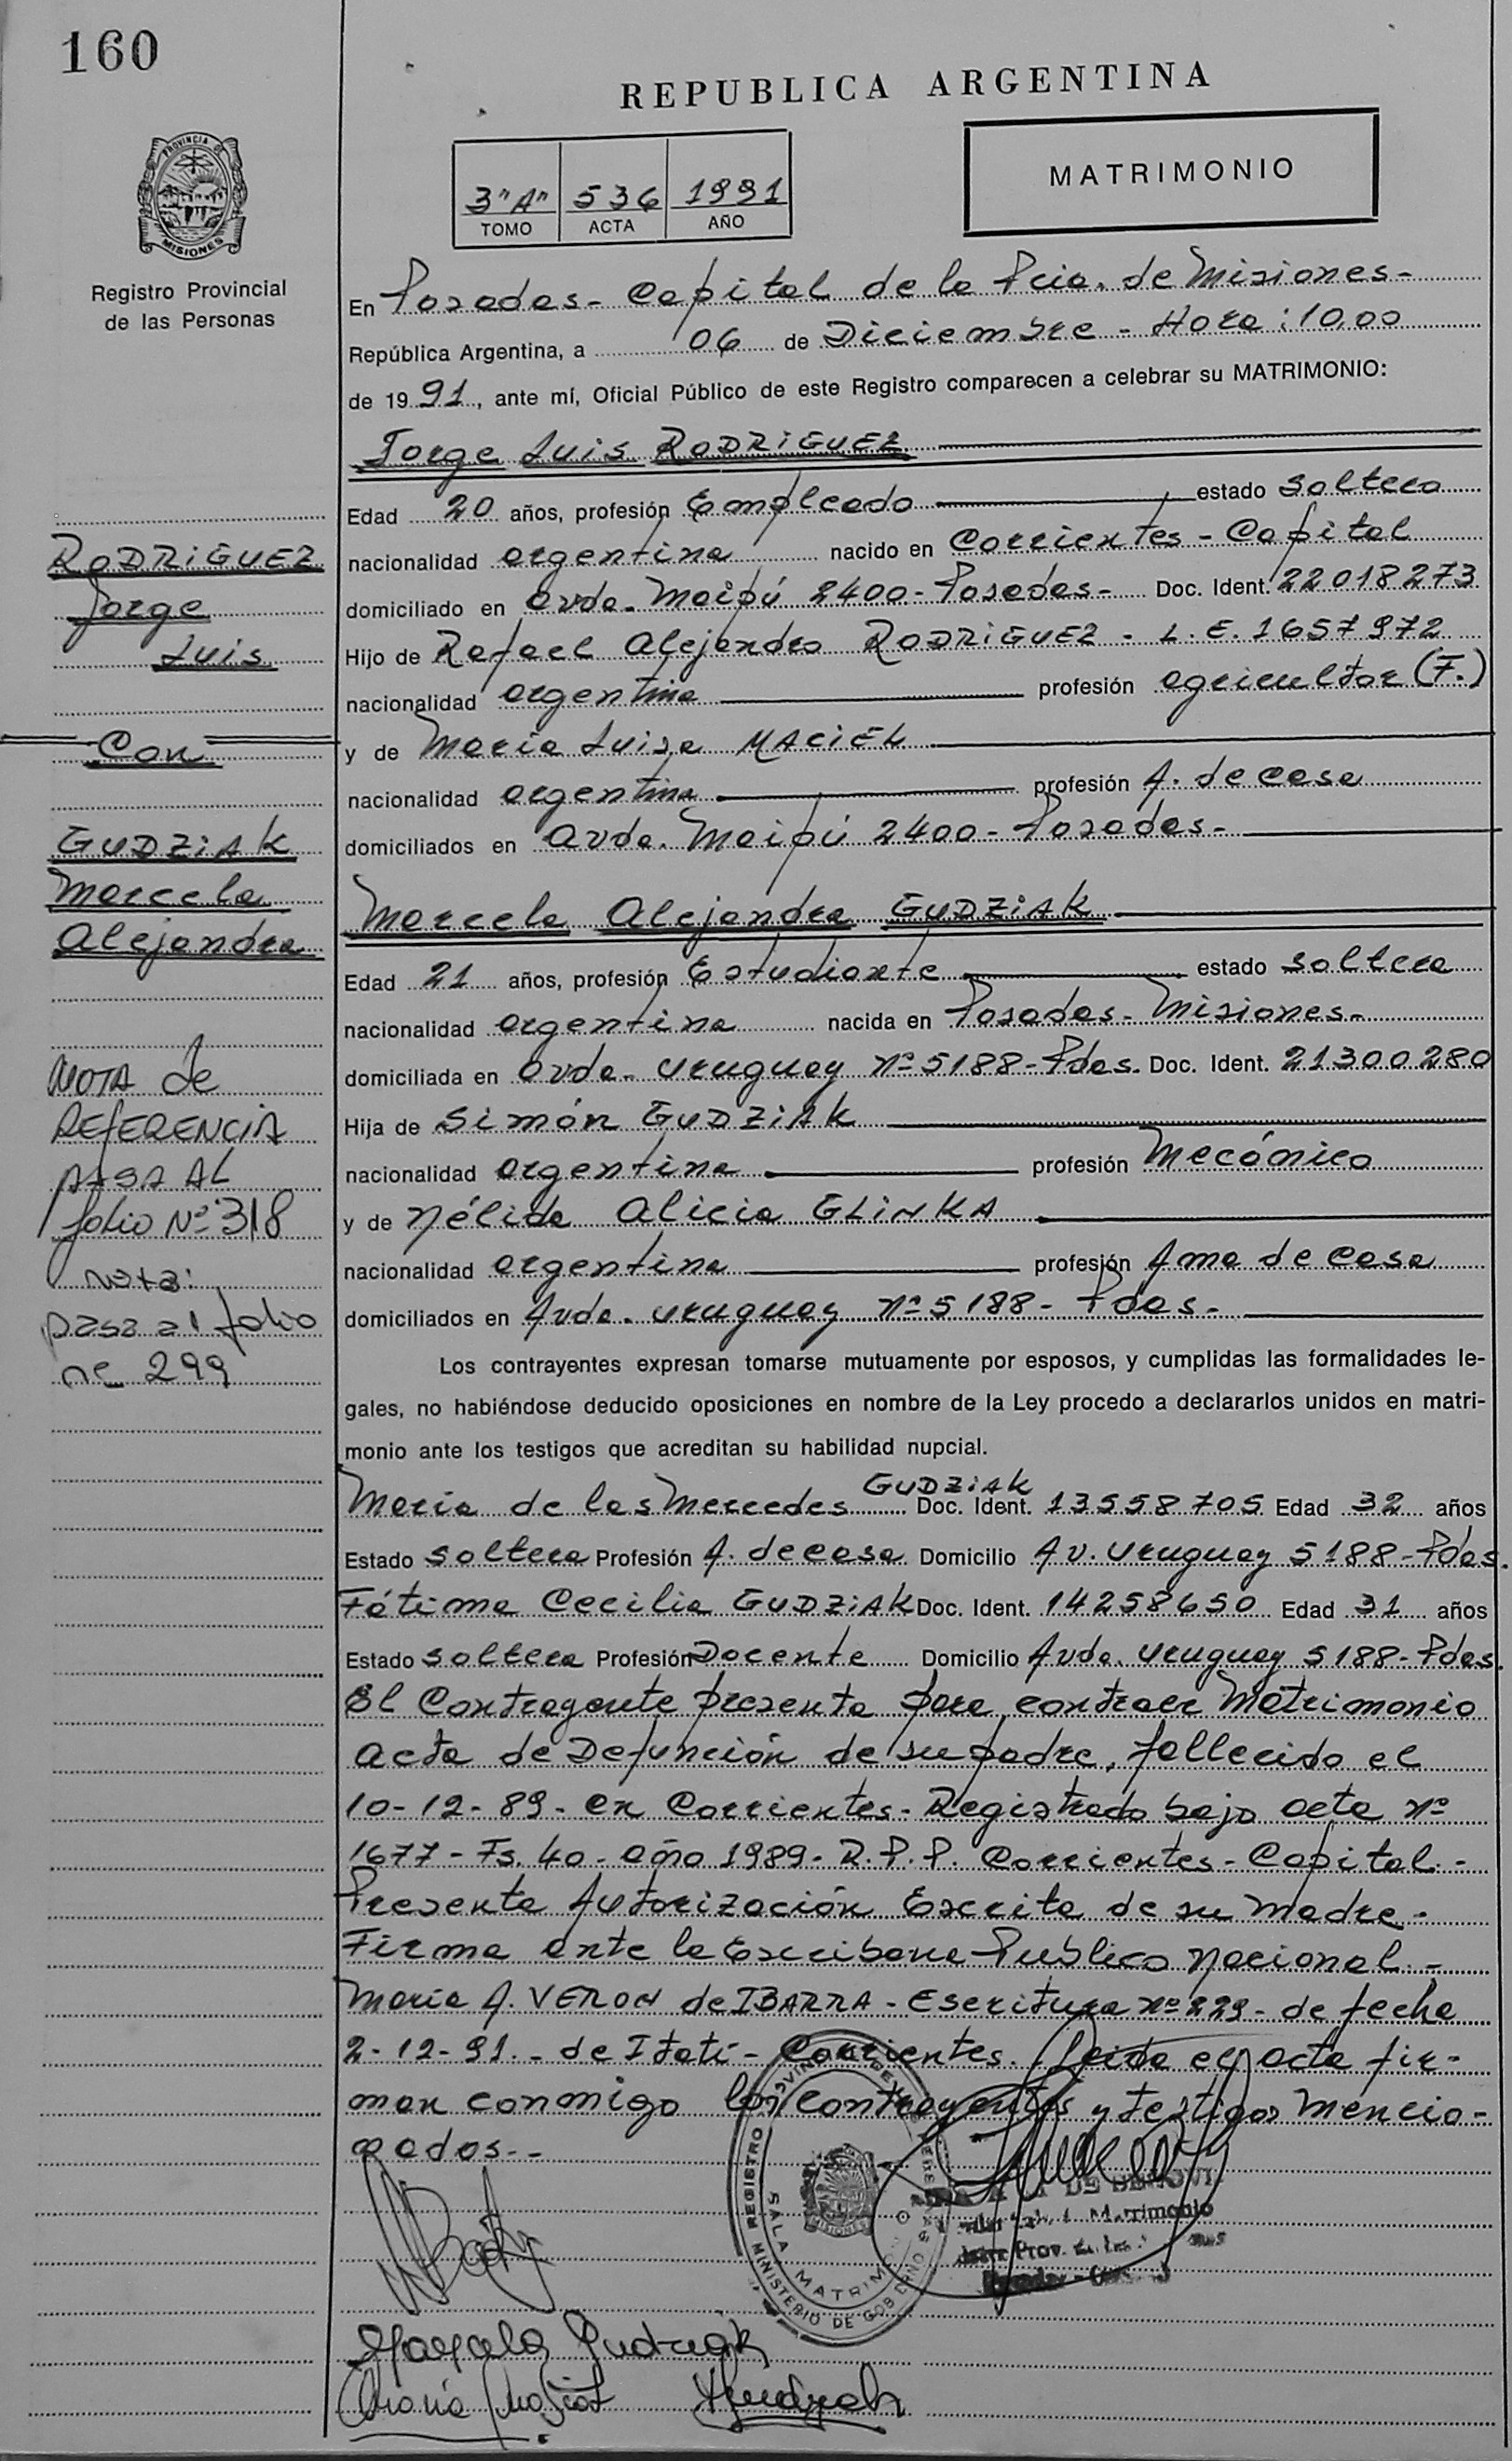 160
REPUBLICA ARGENTINA
PROVINCIA DE
MISIONES
Registro Provincial
de las Personas
3"A" 536 1991
TOMO ACTA AÑO
MATRIMONIO
En Posadas - Capital de la Pcia. de Misiones -
República Argentina, a 06 de Diciembre - Hora: 10,00
de 1991, ante mí, Oficial Público de este Registro comparecen a celebrar su MATRIMONIO:
Jorge Luis RODRIGUEZ
Edad 20 años, profesión Empleado estado soltero
nacionalidad argentina nacido en Corrientes - Capital
domiciliado en Avda. Maipú 2400 - Posadas - Doc. Ident. 22018273
Hijo de Rafael Alejandro RODRIGUEZ - L.E. 1657972
nacionalidad argentina profesión agricultor (F.)
y de María Luisa MACIEL
nacionalidad argentina profesión A. de casa
domiciliados en Avda. Maipú 2400 - Posadas -
Marcela Alejandra GUDZIAK
Edad 21 años, profesión Estudiante estado soltera
nacionalidad argentina nacida en Posadas - Misiones -
domiciliada en Avda. Uruguay Nº 5188 - Pdas. Doc. Ident. 21300280
Hija de Simón GUDZIAK
nacionalidad argentina profesión Mecánico
y de Nélida Alicia GLINKA
nacionalidad argentina profesión Ama de casa
domiciliados en Avda. Uruguay Nº 5188 - Pdas -
Los contrayentes expresan tomarse mutuamente por esposos, y cumplidas las formalidades le-
gales, no habiéndose deducido oposiciones en nombre de la Ley procedo a declararlos unidos en matri-
monio ante los testigos que acreditan su habilidad nupcial.
María de las Mercedes GUDZIAK Doc. Ident. 13558705 Edad 32 años
Estado soltera Profesión A. de casa Domicilio Av. Uruguay 5188 - Pdas.
Fátima Cecilia GUDZIAK Doc. Ident. 14258650 Edad 31 años
Estado soltera Profesión Docente Domicilio Avda. Uruguay 5188 - Pdas.
El Contrayente presenta para contraer Matrimonio
Acta de Defunción de su padre, fallecido el
10-12-89 - en Corrientes - Registrado bajo acta Nº
1677 - Fs. 40 - año 1989 - R.P.P. Corrientes - Capital -
Presenta Autorización Escrita de su Madre -
Firma ante la Escribana Público Nacional -
María A. VERON de IBARRA - Escritura Nº 229 - de fecha
2-12-91. - de Itatí - Corrientes. Leída el acta fir-
man conmigo los contrayentes y testigos mencio-
nados --
RODRIGUEZ
Jorge
Luis
Con
GUDZIAK
Marcela
Alejandra
NOTA de
REFERENCIA
PASA AL
folio Nº 318
nota:
pasa al folio
nº 299
REGISTRO PROVINCIAL DE
SALA MATRIM
MINISTERIO DE GOBIERNO
MISIONES
Matrimonio
Prov.
Marcela Gudziak
Gudziak